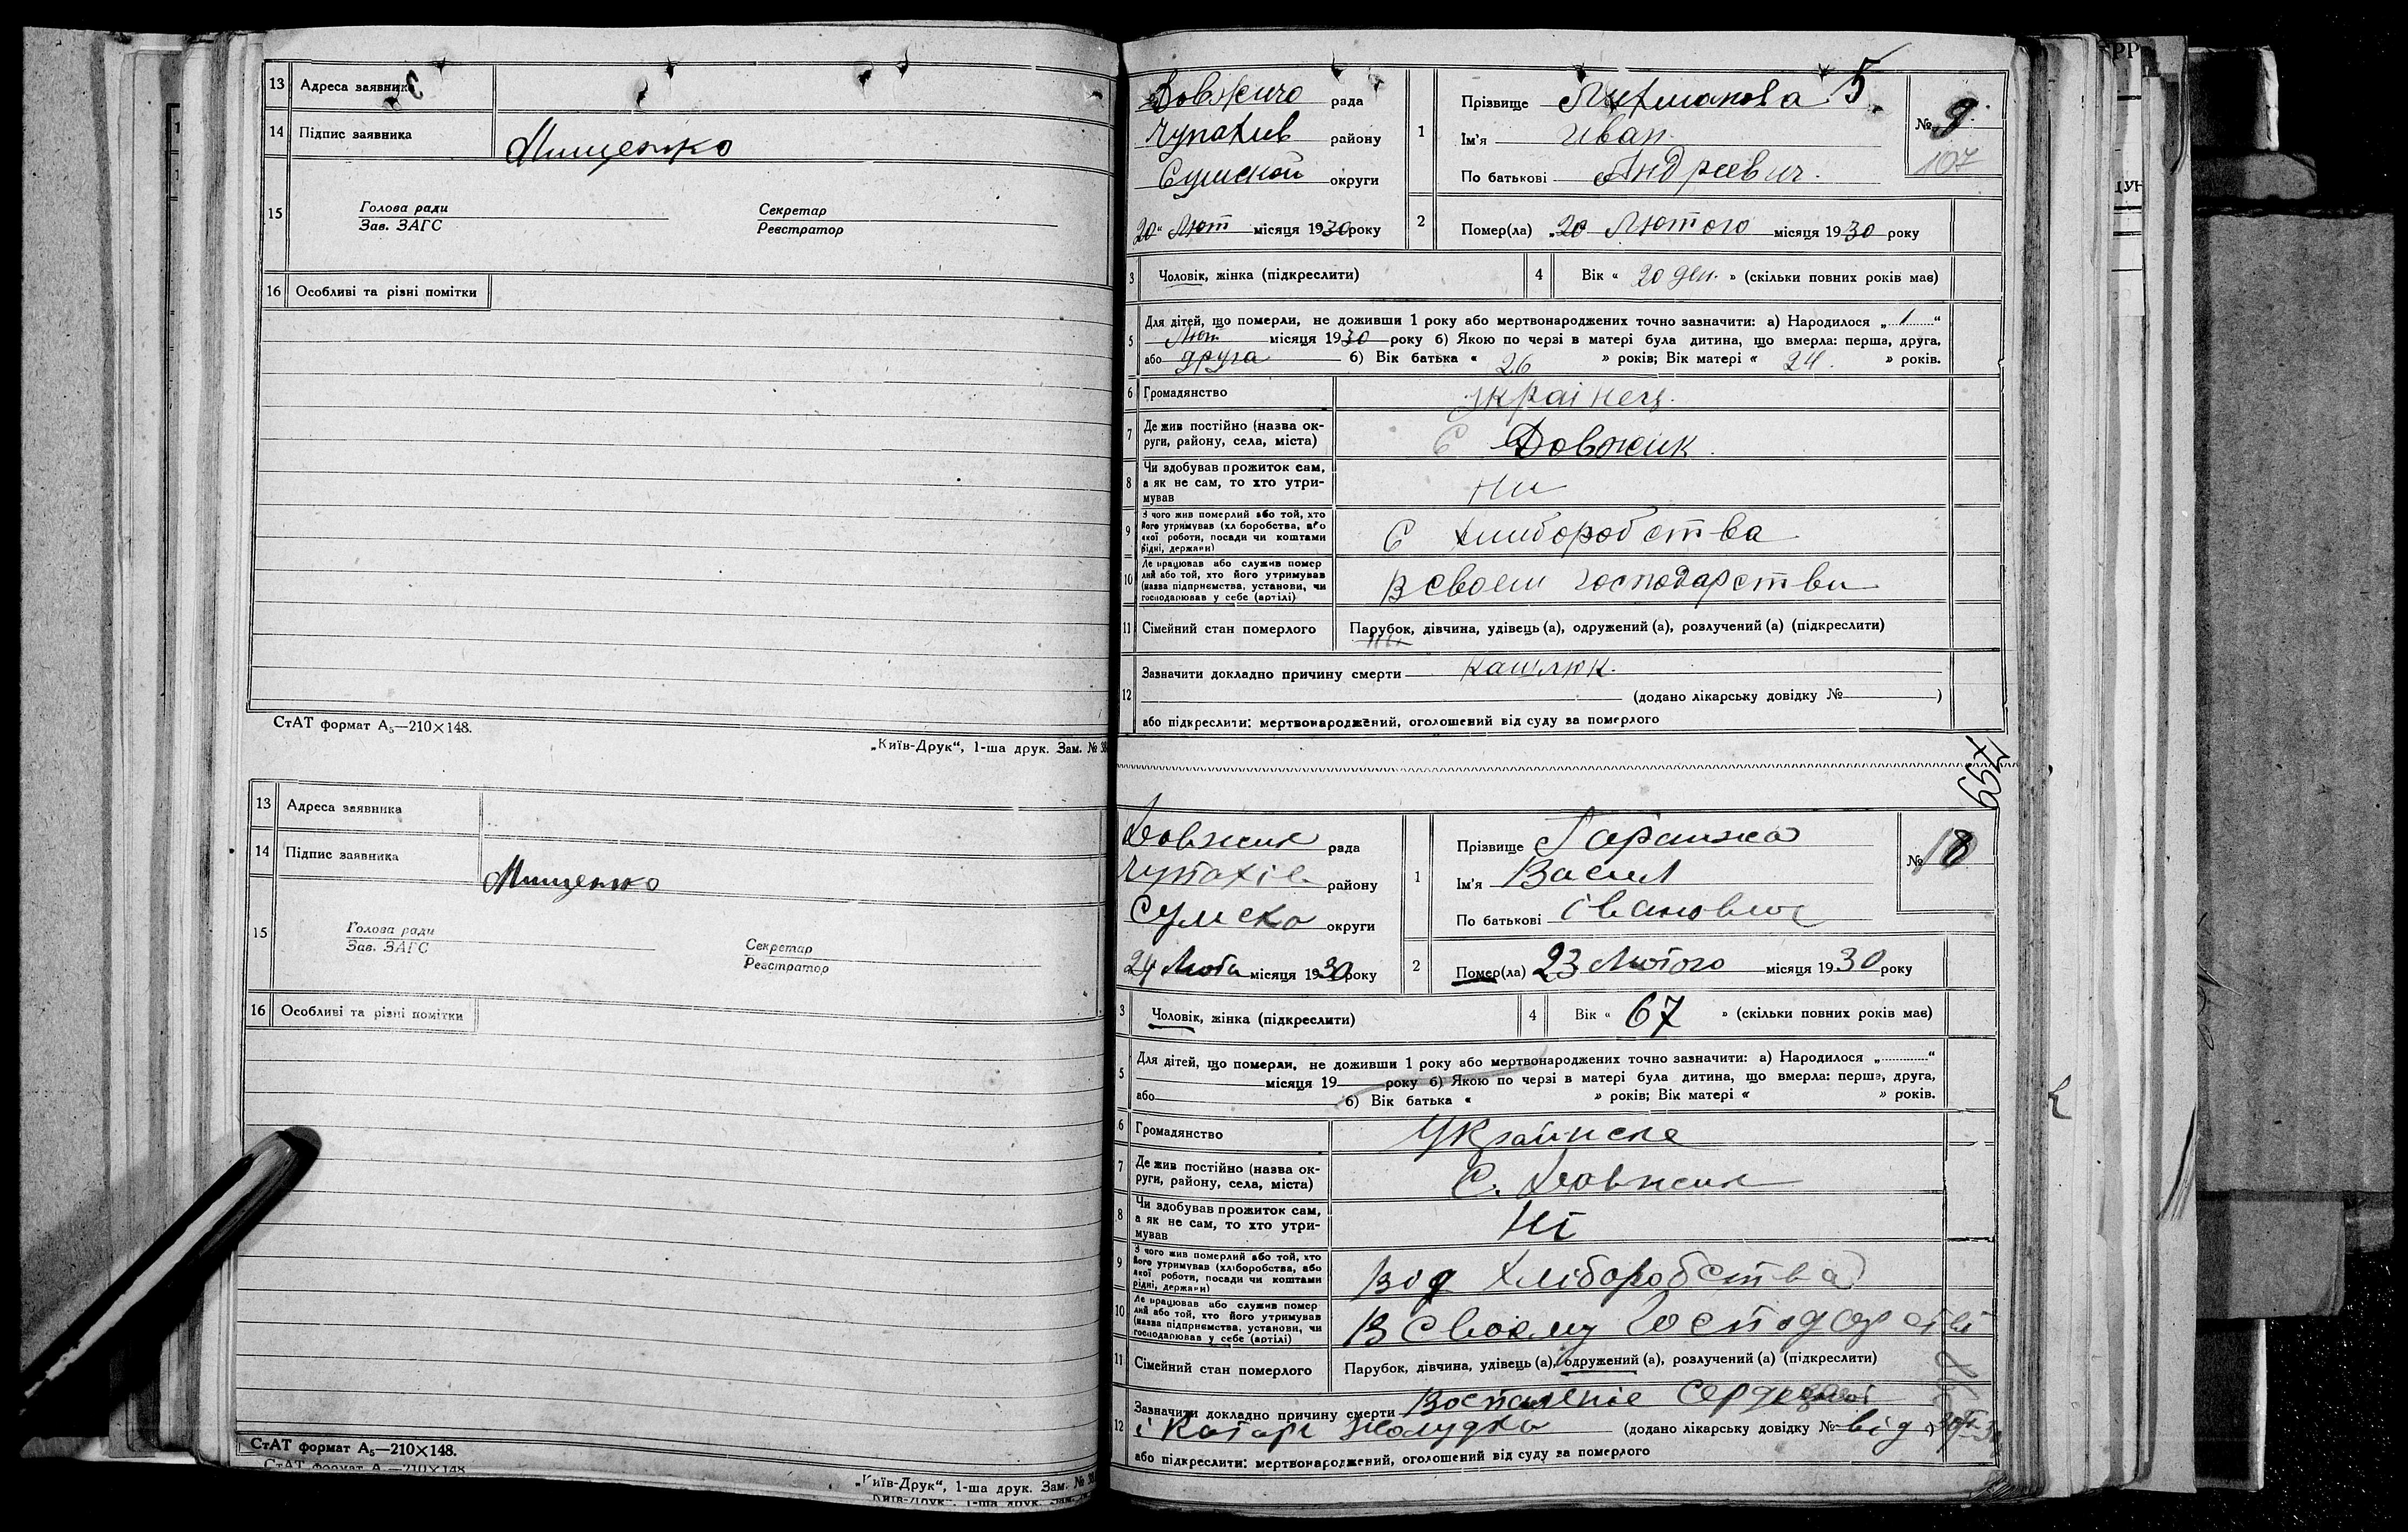 13 Адреса заявника
14 Підпис заявника Мищенко
15 Голова ради Секретар
Зав. ЗАГС Реєстратор
16 Особливі та різні помітки
СтАТ формат А5—210×148.
„Київ-Друк“, 1-ша друк. Зам. № 38
13 Адреса заявника
14 Підпис заявника Мищенко
15 Голова ради Секретар
Зав. ЗАГС Реєстратор
16 Особливі та різні помітки
СтАТ формат А5—210×148.
„Київ-Друк“, 1-ша друк. Зам. № 38
рада
району
Сумской округи
20 Лют місяця 1930 року
1 Прізвище 5.
Ім'я Иван
По батькові Андреевич
№ 9
107
2 Помер(ла) „20 Лютого місяця 1930 року
3 Чоловік, жінка (підкреслити)
4 Вік « 20 ден. » (скільки повних років має)
5 Для дітей, що померли, не доживши 1 року або мертвонароджених точно зазначити: а) Народилося „ 1 “
Лют місяця 1930 року б) Якою по черзі в матері була дитина, що вмерла: перша, друга,
або друга б) Вік батька « 26 » років; Вік матері « 24 » років.
6 Громадянство українец
7 Де жив постійно (назва округи, району, села, міста) С Довжик
8 Чи здобував прожиток сам, а як не сам, то хто утримував Ни
9 З чого жив померлий або той, хто його утримував (хліборобства, або якої роботи, посади чи коштами рідні, держави) С хлиборобства
10 Де працював або служив померлий або той, хто його утримував (назва підприємства, установи, чи господарював у себе (артілі) В своем господарстви
11 Сімейний стан померлого Парубок, дівчина, удівець (а), одружений (а), розлучений (а) (підкреслити)
12 Зазначити докладно причину смерти кашлюк.
(додано лікарську довідку № )
або підкреслити: мертвонароджений, оголошений від суду за померлого
Довжик рада
району
Сумско округи
24 Люта місяця 1930 року
1 Прізвище Гаранжа
Ім'я Васил
По батькові Іванович
№
2 Помер(ла) 23 Лютого місяця 1930 року
3 Чоловік, жінка (підкреслити)
4 Вік « 67 » (скільки повних років має)
5 Для дітей, що померли, не доживши 1 року або мертвонароджених точно зазначити: а) Народилося „ “
місяця 19 року б) Якою по черзі в матері була дитина, що вмерла: перша, друга,
або б) Вік батька « » років; Вік матері « » років.
6 Громадянство Украинске
7 Де жив постійно (назва округи, району, села, міста) С. Довжик
8 Чи здобував прожиток сам, а як не сам, то хто утримував Ні
9 З чого жив померлий або той, хто його утримував (хліборобства, або якої роботи, посади чи коштами рідні, держави) Вод Хліборобства
10 Де працював або служив померлий або той, хто його утримував (назва підприємства, установи, чи господарював у себе (артілі) В своему
11 Сімейний стан померлого Парубок, дівчина, удівець (а), одружений (а), розлучений (а) (підкреслити)
12 Зазначити докладно причину смерти Воспаленіе
і Катар Жолудка (додано лікарську довідку № від
або підкреслити: мертвонароджений, оголошений від суду за померлого